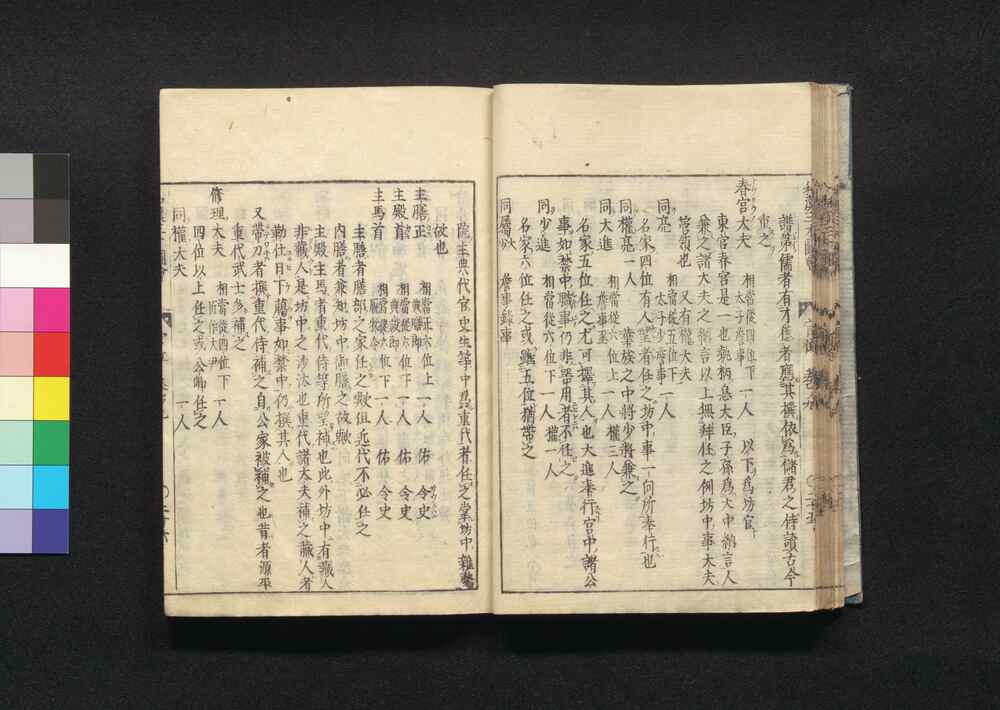 譜第儒者有才德者應其撰依爲儲君之侍讀古今
重之
春宮大夫 相當從四位下 太子詹事 一人 以下爲坊官
東宮春宮是一也執柄息大臣子孫爲大中納言人
兼之諸大夫之納言以上無拜任之例坊中事大夫
管領也 又有權大夫
同亮 相當從五位下 太子少詹事 一人
名家四位有人望者任之坊中事一向所奉行也
同權亮一人 華族之中將少將兼之
同大進 相當從六位上 詹事丞 一人 權三人
名家五位任之尤可擇其人也大進奉行宮中諸公
事如禁中職事仍非器用者不任之
同少進 相當從六位下 一人 權一人
名家六位任之或雖五位猶帶之
同屬 詹事錄事
院主典代官史生等中爲重代者任之掌坊中雜
故也
主膳正 相當正六位上 一人 佑 令史
主殿首 相當從六位下 一人 佑 令史
主馬首 相當從六位下 一人 佑 令史
主膳者膳部之家任之歟但近代不必任之
內膳者兼知坊中御膳之故歟
主殿主馬者重代侍等所望補也此外坊中有藏人
非藏人是坊中之涉汰也重代諸大夫補之藏人者
勤仕日下﨟事如禁中仍撰其人也
又帶刀者撰重代侍補之自公家被補之也昔者源平
重代武士多補之
修理大夫 相當從四位下 匠作大尹 一人
四位以上任之或公卿任之
同權大夫 一人